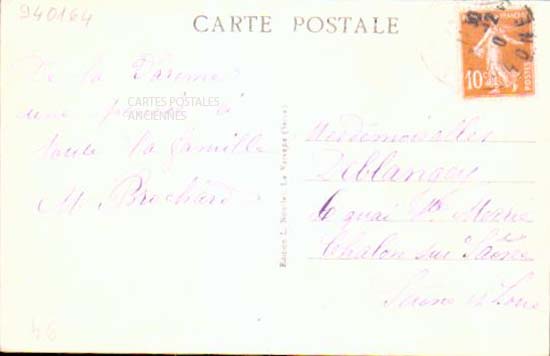 940164
CARTE POSTALE
10c
POSTES
De la Varenne
une pensée à
toute la famille
M. Brochard
CARTES POSTALES
ANCIENNES
Mesdemoiselles
Deblangey
quai Ste Marie
Chalon sur Saône
Saône et Loire